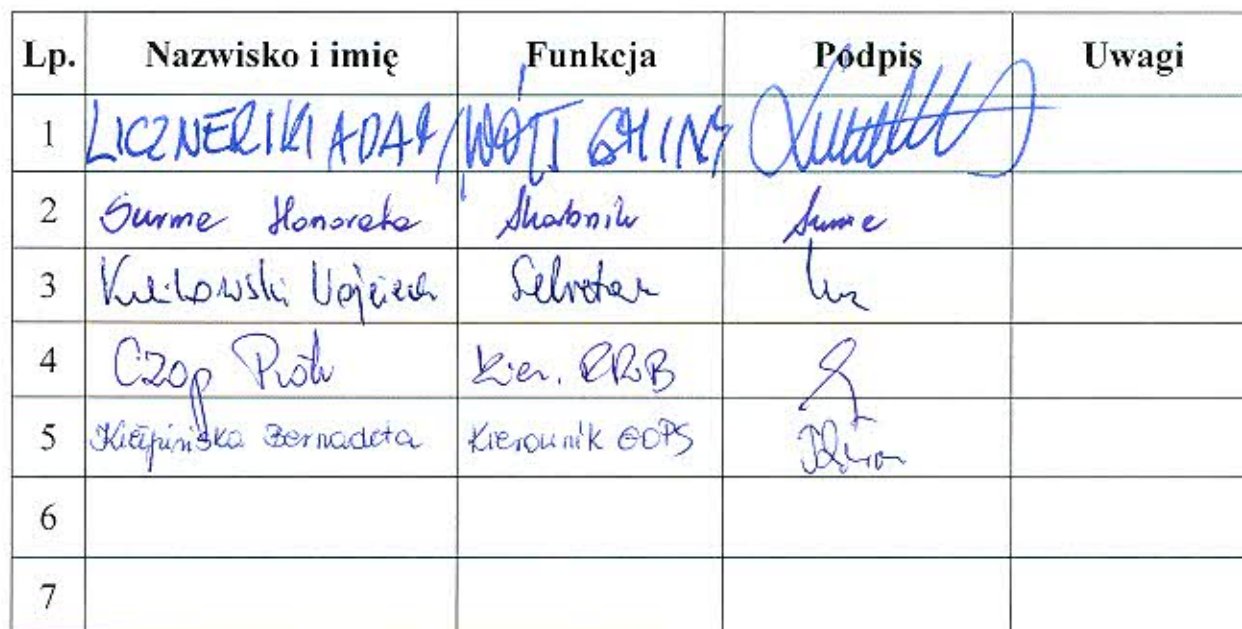 Lp. Nazwisko i imię Funkcja Podpis Uwagi
1 LICZNERSKI ADAM WÓJT GMINY
2 Surma Honorata Skarbnik
3 Kulikowski Wojciech Sekretarz
4 Czop Piotr Kier. RRiB
5 Kiełpińska Bernadeta Kierownik GOPS
6
7